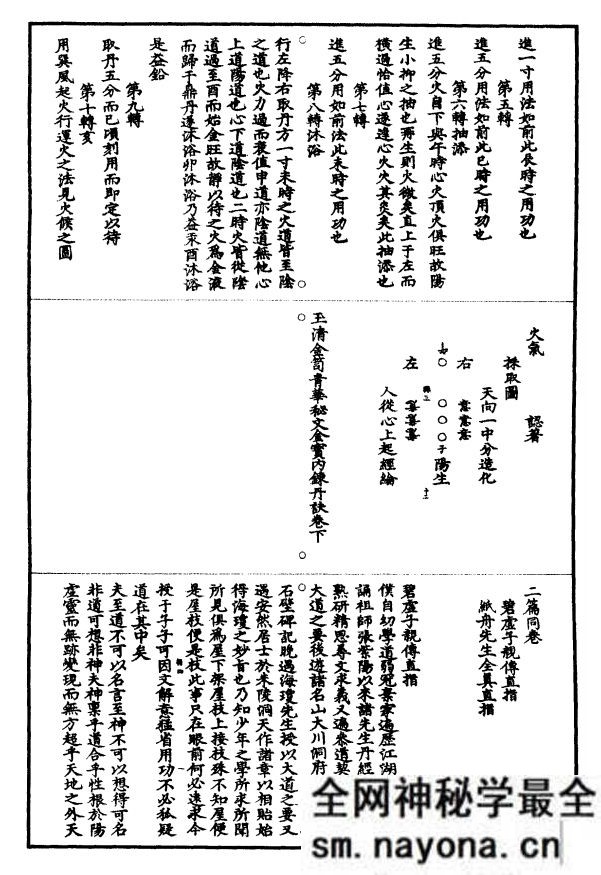 進一寸用法如前此辰時之用功也
第五轉
進五分用法如前此巳時之用功也
第六轉抽添
進五分火自下與午時心火頂火俱旺故陽
生小抑之抽也弭生則火微矣直上于左而
橫過恰值心邊逢心火火其炎矣此抽添也
第七轉
進五分用如前法此未時之用功也
第八轉沐浴
行左降右取丹方一寸未時之火道皆至陰
之道也火力過而衰值申道亦陰道無他心
上道陽道也心下道陰道也二時火皆從陰
道過至酉而始金旺故靜以待之火為金液
而歸于鼎丹運沐浴卯沐浴乃益汞酉沐浴
是益鉛
第九轉
取丹五分而已頃刻用而即定以待
第十轉亥
用巽風起火行運火之法見火候之圖
火氣 認著
採取圖
天向一中分造化
右 意意意
○ ○○○子陽生
左
人從心上起經綸
玉清金笥青華秘文金寶內鍊丹訣卷下
二篇同卷
碧虛子親傳直指
紙舟先生全真直指
碧虛子親傳直指
僕自幼學道弱冠棄家遍歷江湖
誦祖師張紫陽以來諸先生丹經
熟研精思尋文求義又遍參道契
大道之要後遊諸名山大川洞府
石壁碑記晚遇海瓊先生授以大道之要又
遇安然居士於朱陵洞天作諸章以相貽始
得海瓊之妙旨也乃知少年之學所求所聞
所見俱為屋下架屋枝上接枝殊不知屋便
是屋枝便是枝此事只在眼前何必遠求今
授于子子可因文解意猛省用功不必狐疑
道在其中矣
夫至道不可以名言至神不可以想得可名
非道可想非神夫神稟乎道合乎性根於陽
虛靈而無跡變現而無方超乎天地之外天
全网神秘学最全
sm.nayona.cn